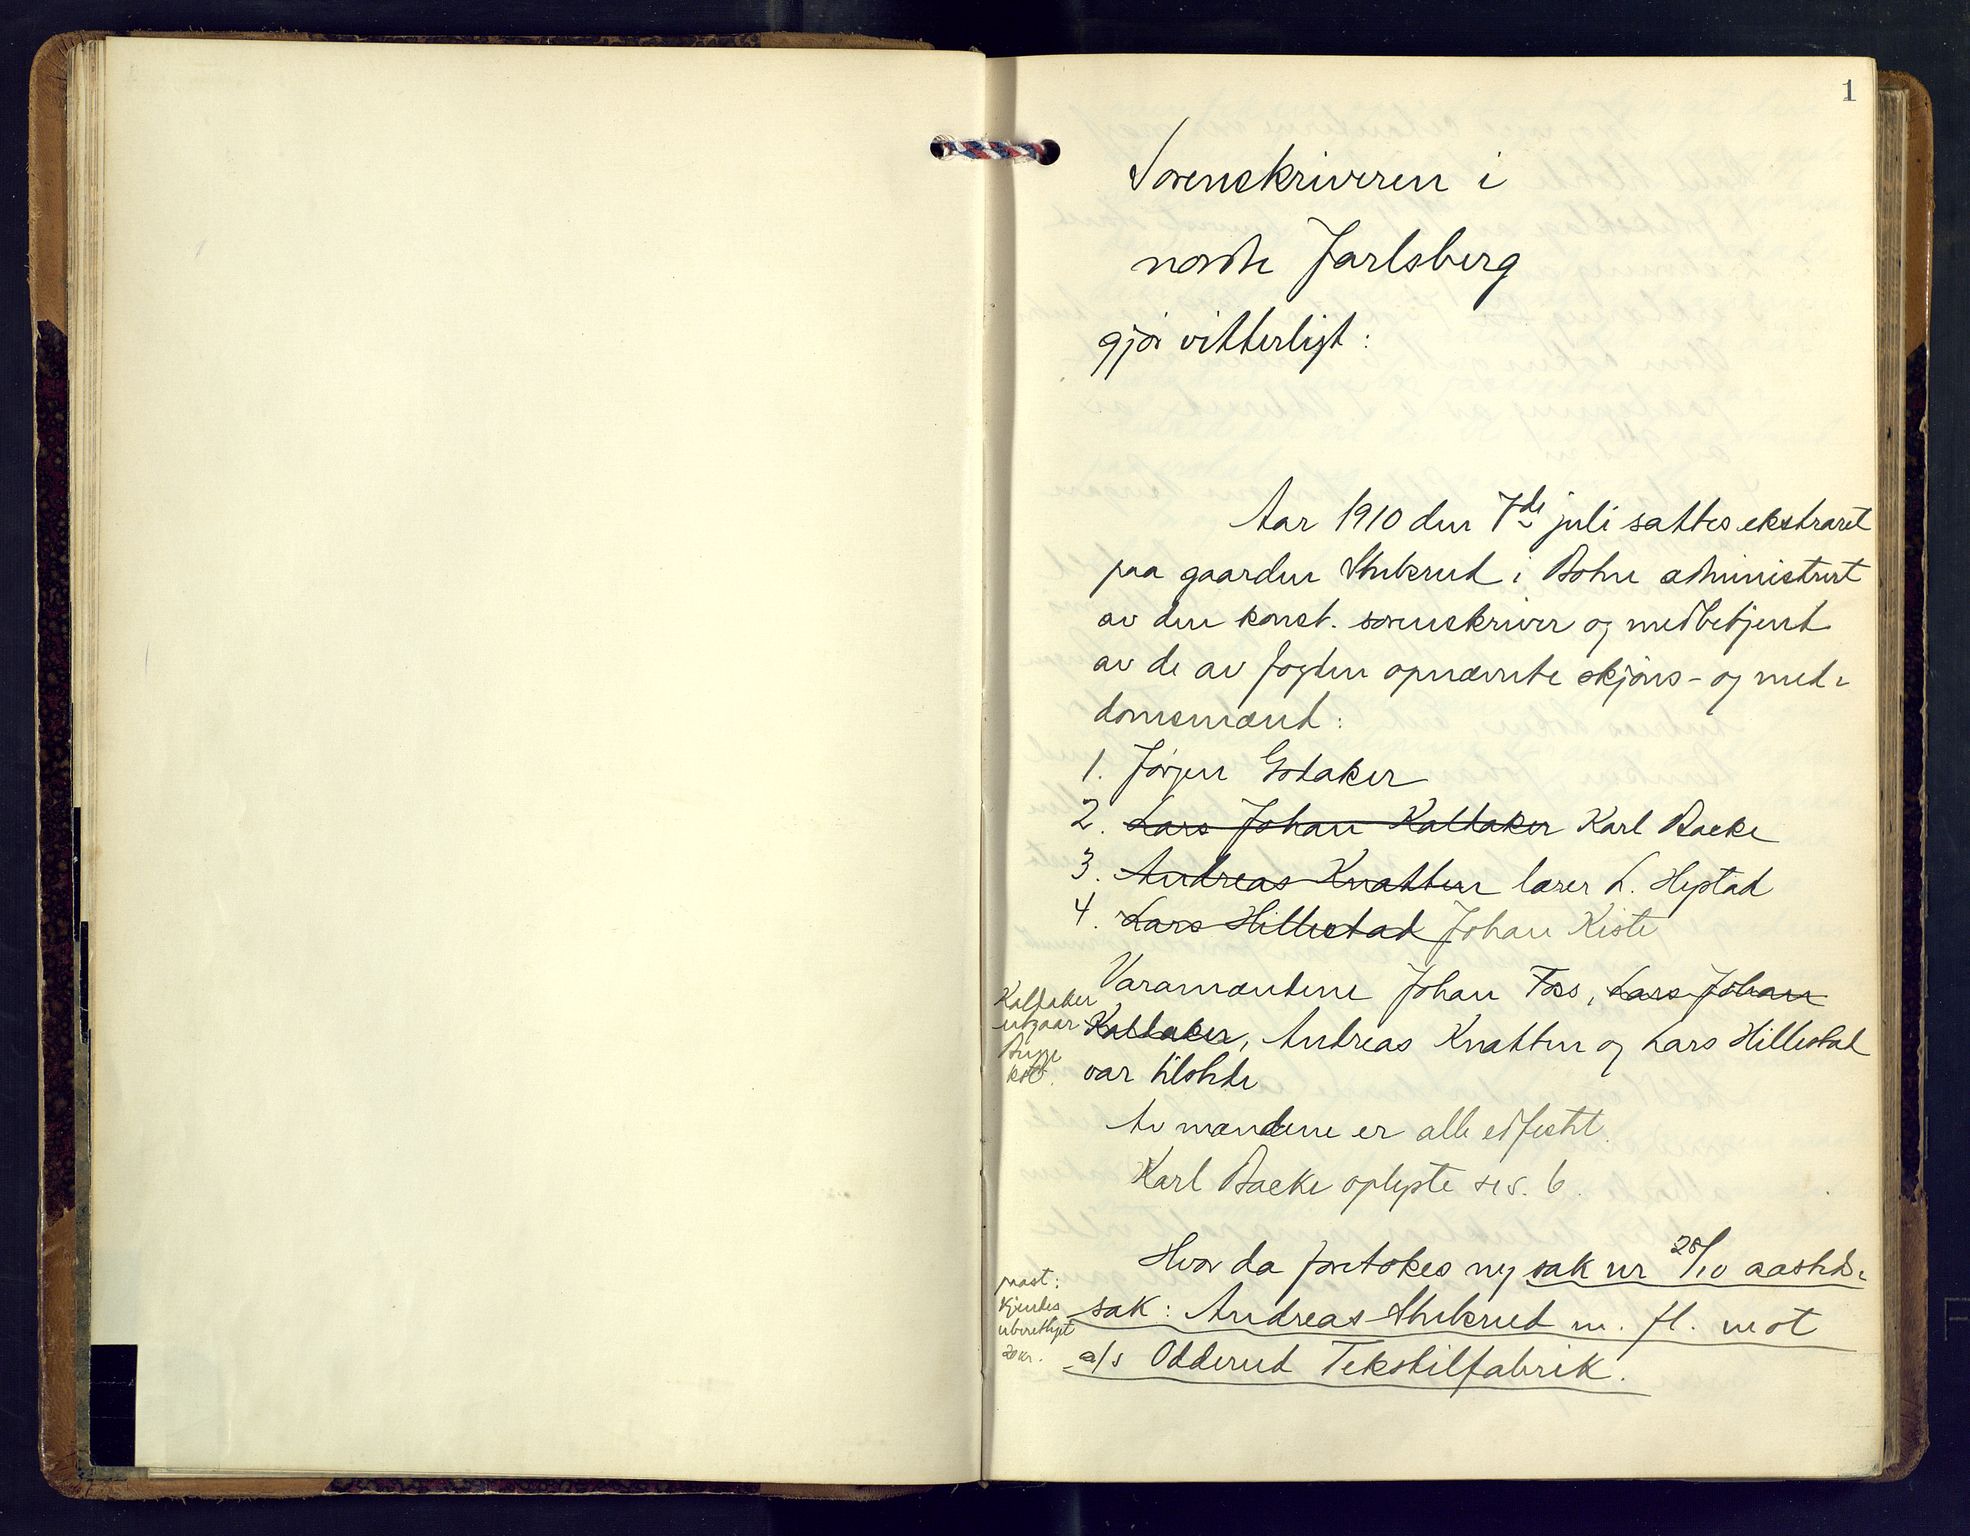 1
Sorenskriveren i
nordre Jarlsberg
gjør vitterligt:
Aar 1910 den 7de juli sattes ekstraret
paa gaarden Stubsrud i Botne administrert
av den konst. sorenskriver og medbetjent
av de av fogden opnævnte skjøns- og med-
domsmænd:
1. Jørgen Godaker
2. Lars Johan Kaldaker Karl Backe
3. Andreas Knatten lærer L. Hystad
4. Lars Hillestad Johan Kiste
Varamændene Johan Foss, Lars Johan
Kaldaker, Andreas Knatten og Lars Hillestad
var tilstede
Kaldaker
utgaar
Av mændene er alle edfæstet.
Karl Backe oplyste s.
Hvor da foretokes ny sak nr 28/10 aasteds-
sak: Andreas Stubsrud m. fl. mot
a/s Odderud Tekstilfabrik.
past:
kjendes
uberettiget
20 kr.